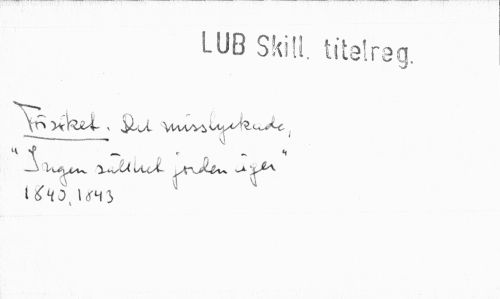 LUB Skill. titelreg.
Försöket. Det misslyckade,
"Ingen sällhet jorden äger"
1840, 1843